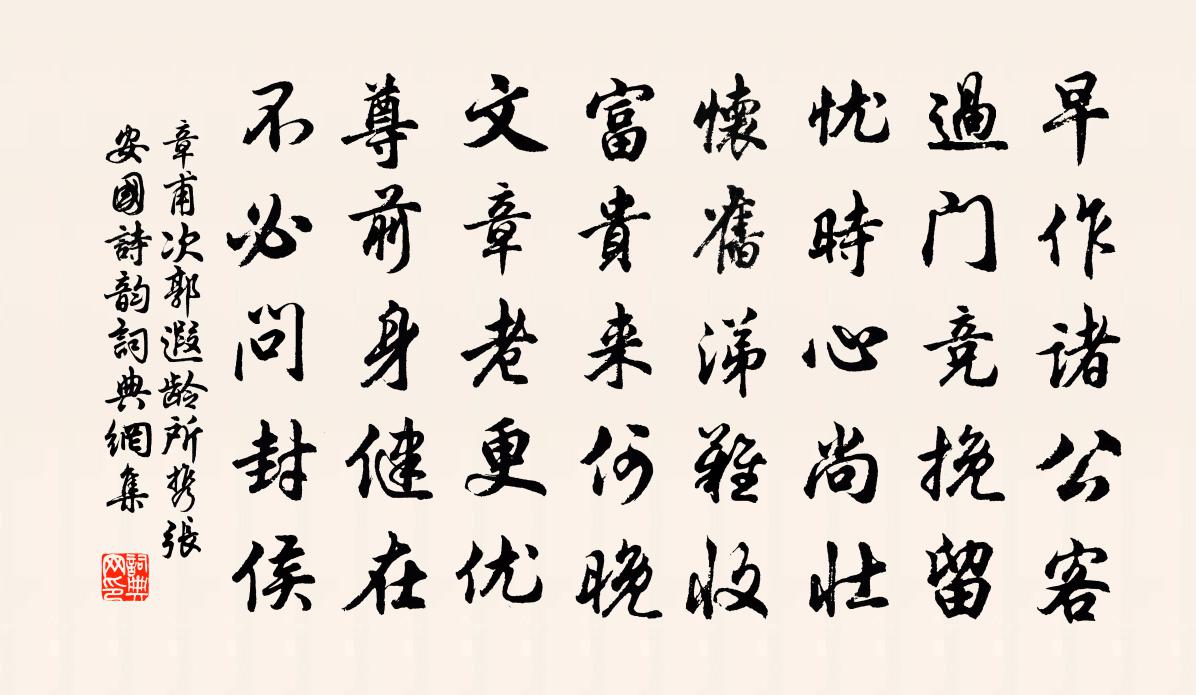 早作諸公客
過门竞挽留
忧時心尚壯
懷舊涕難收
富貴来何晚
文章老更优
尊前身健在
不必问封侯
章甫次郭遐龄所携张
安國詩韵詞典網集
詞典
网印